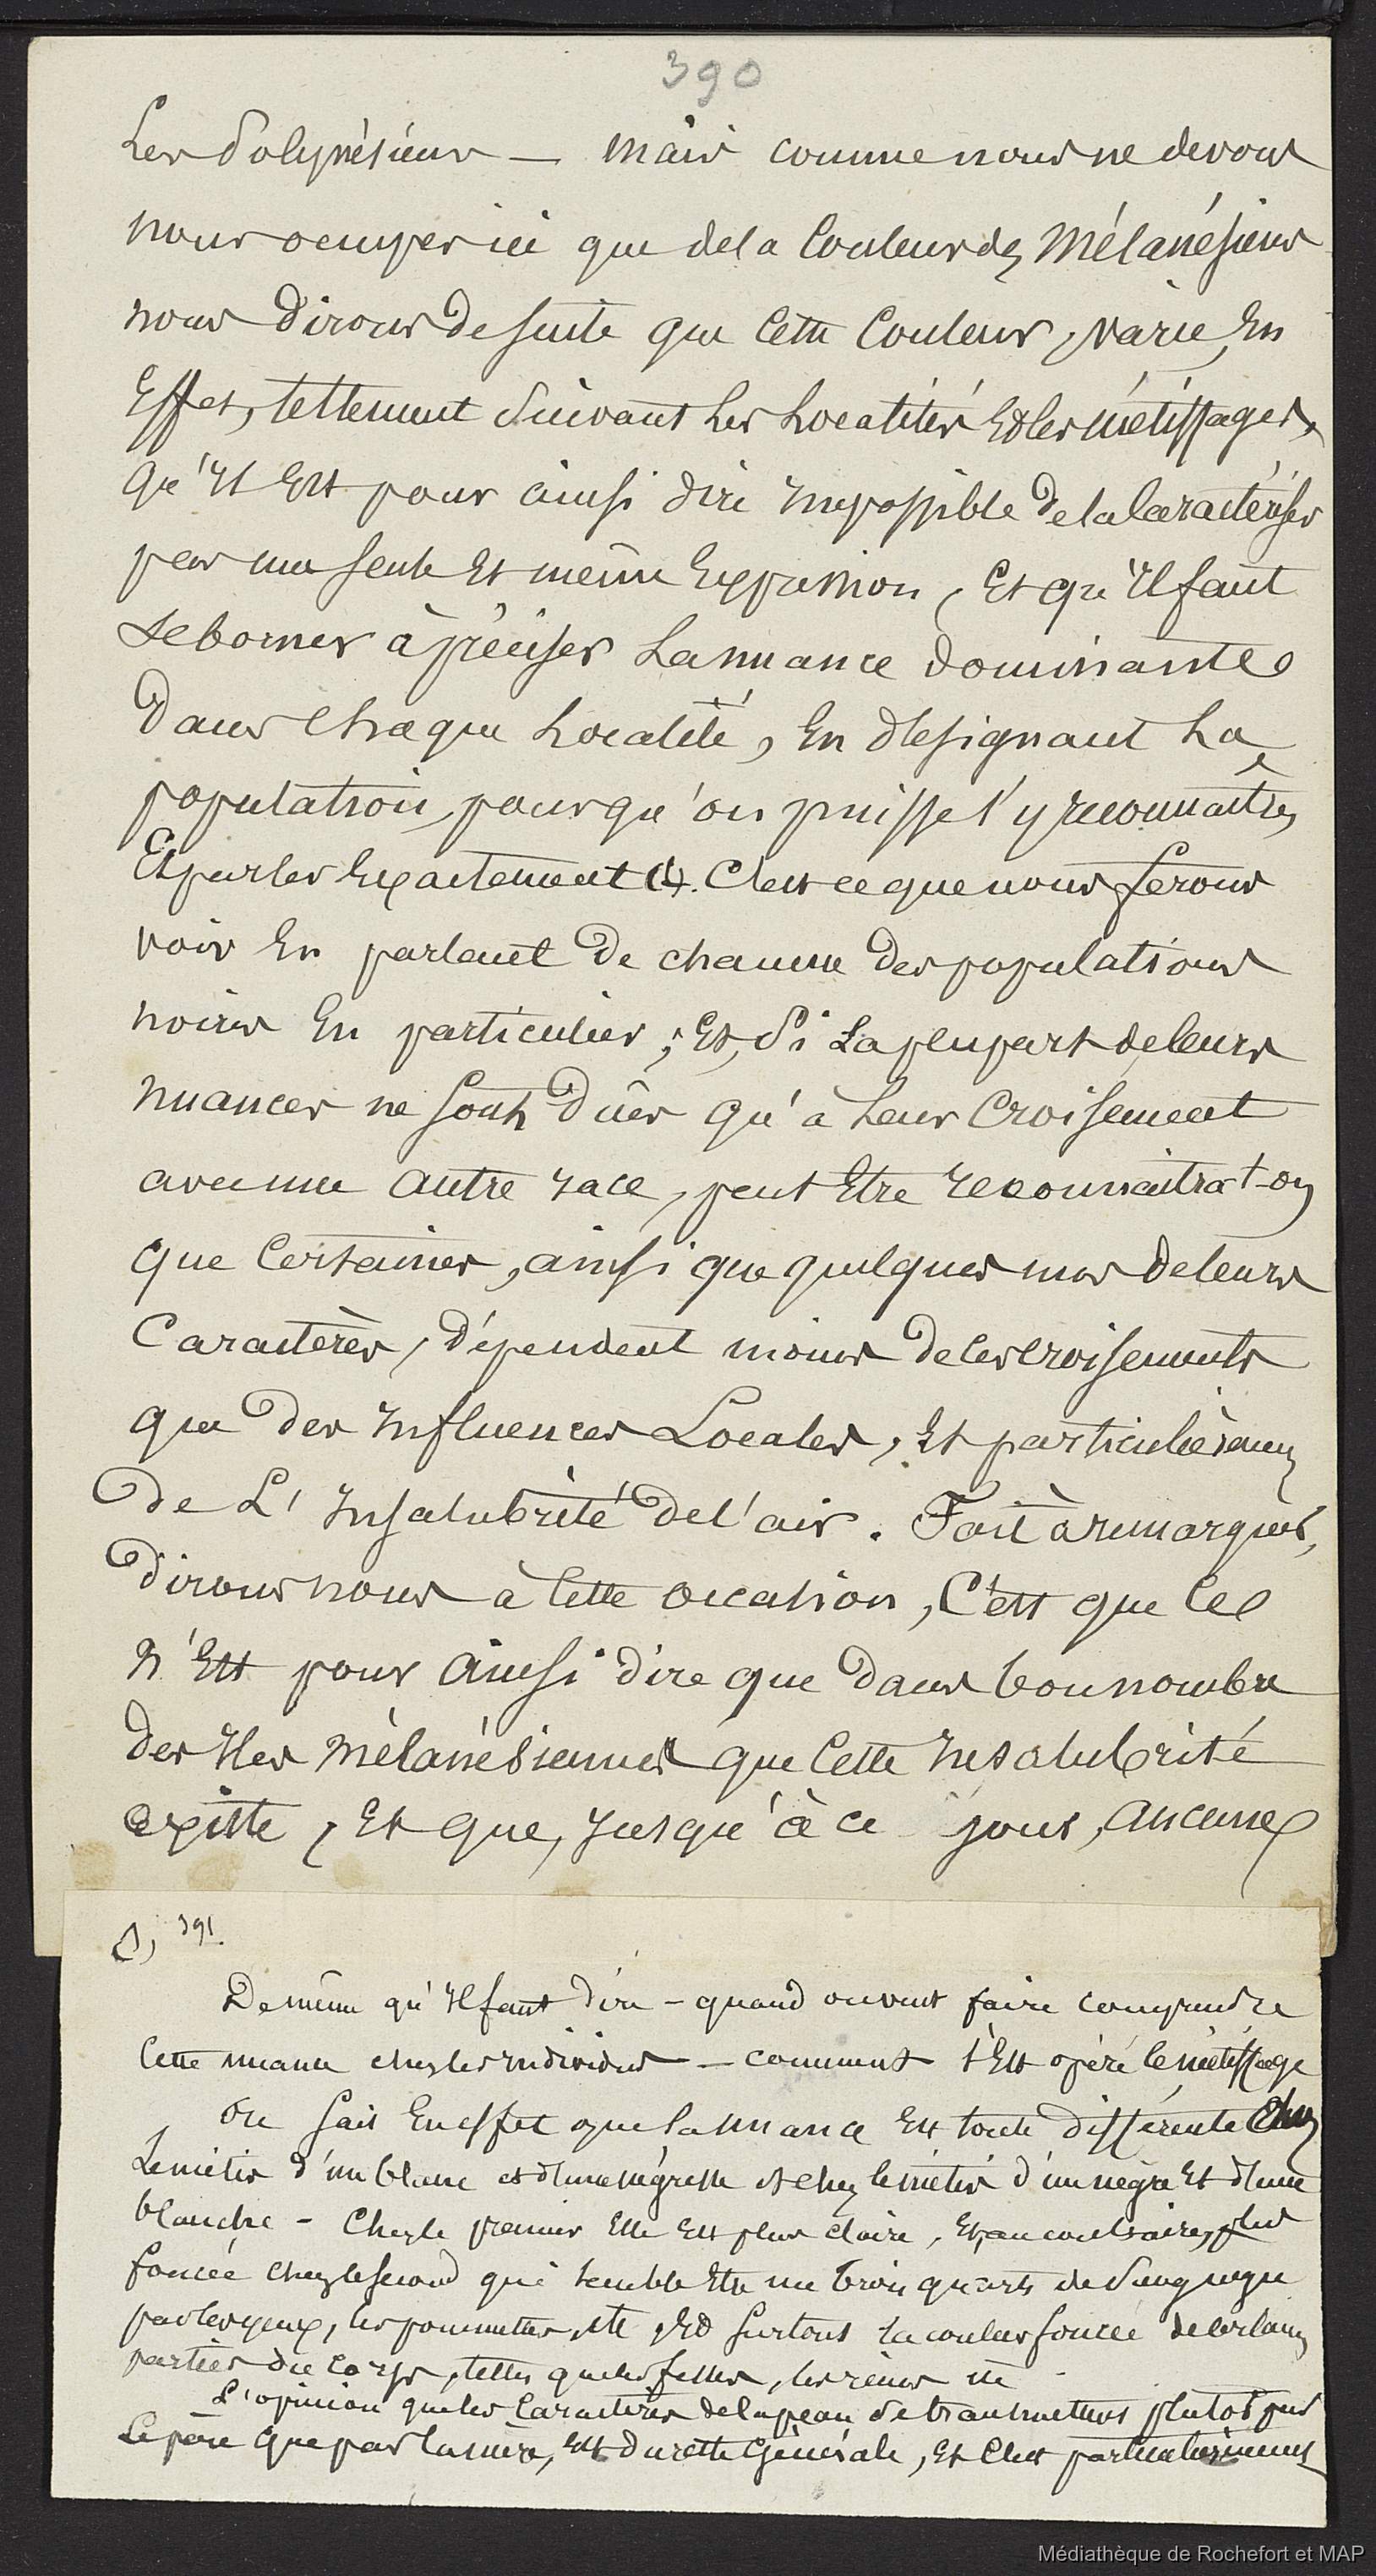 390
Les Polynésiens — mais comme nous ne devons
nous occuper ici que de la Couleur des Mélanésiens
nous dirons de suite que cette Couleur, varie, En
Effet, tellement suivant les Localités Et les métissages,
qu'Il Est pour ainsi dire Impossible de la Caractériser
par une seule Et même Expression, Et qu'Il faut
se borner à préciser La nuance dominante
dans Chaque Localité, En désignant La
population, pour qu'on puisse s'y reconnaître
Et parler Exactement (1). C'est ce que nous ferons
voir En parlant de chacune des populations
noires En particulier; Et, Si La plupart de leurs
nuances ne sont dûes qu'à Leur Croisement
avec une autre race, peut Etre reconnaitra-t-on
que Certaines, ainsi que quelques uns de leurs
Caractères, dépendent moins de ces croisements
que des Influences Locales, Et particulièremt
de L'Insalubrité de l'air. Fait à remarquer,
dirons nous à Cette occasion, C'est que Ce
n'Est pour ainsi dire que dans bon nombre
des Iles Mélanésiennes que Cette Insalubrité
existe, Et que, Jusqu'à ce jour, aucune
(1) 391.
De même qu'Il faut dire – quand on veut faire comprendre
Cette nuance chez les Individus — comment s'Est opéré le métissage
On sait En effet que la nuance Est toute différente Chez
Le métis d'un blanc et d'une négresse et chez le métis d'un nègre Et d'une
blanche – Chez le premier Elle Est plus claire, Et, au contraire, plus
foncée chez le second qui semble Etre un trois quarts de Sang nègre
par les yeux, les pommettes, etc, Et surtout la couleur foncée de certaines
parties du Corps, telles que les fesses, les reins etc
L'opinion que les Caractères de la peau se transmettent plutot par
Le père que par la mère, Est du reste Générale, Et C'est particulièrement
Médiathèque de Rochefort et MAP